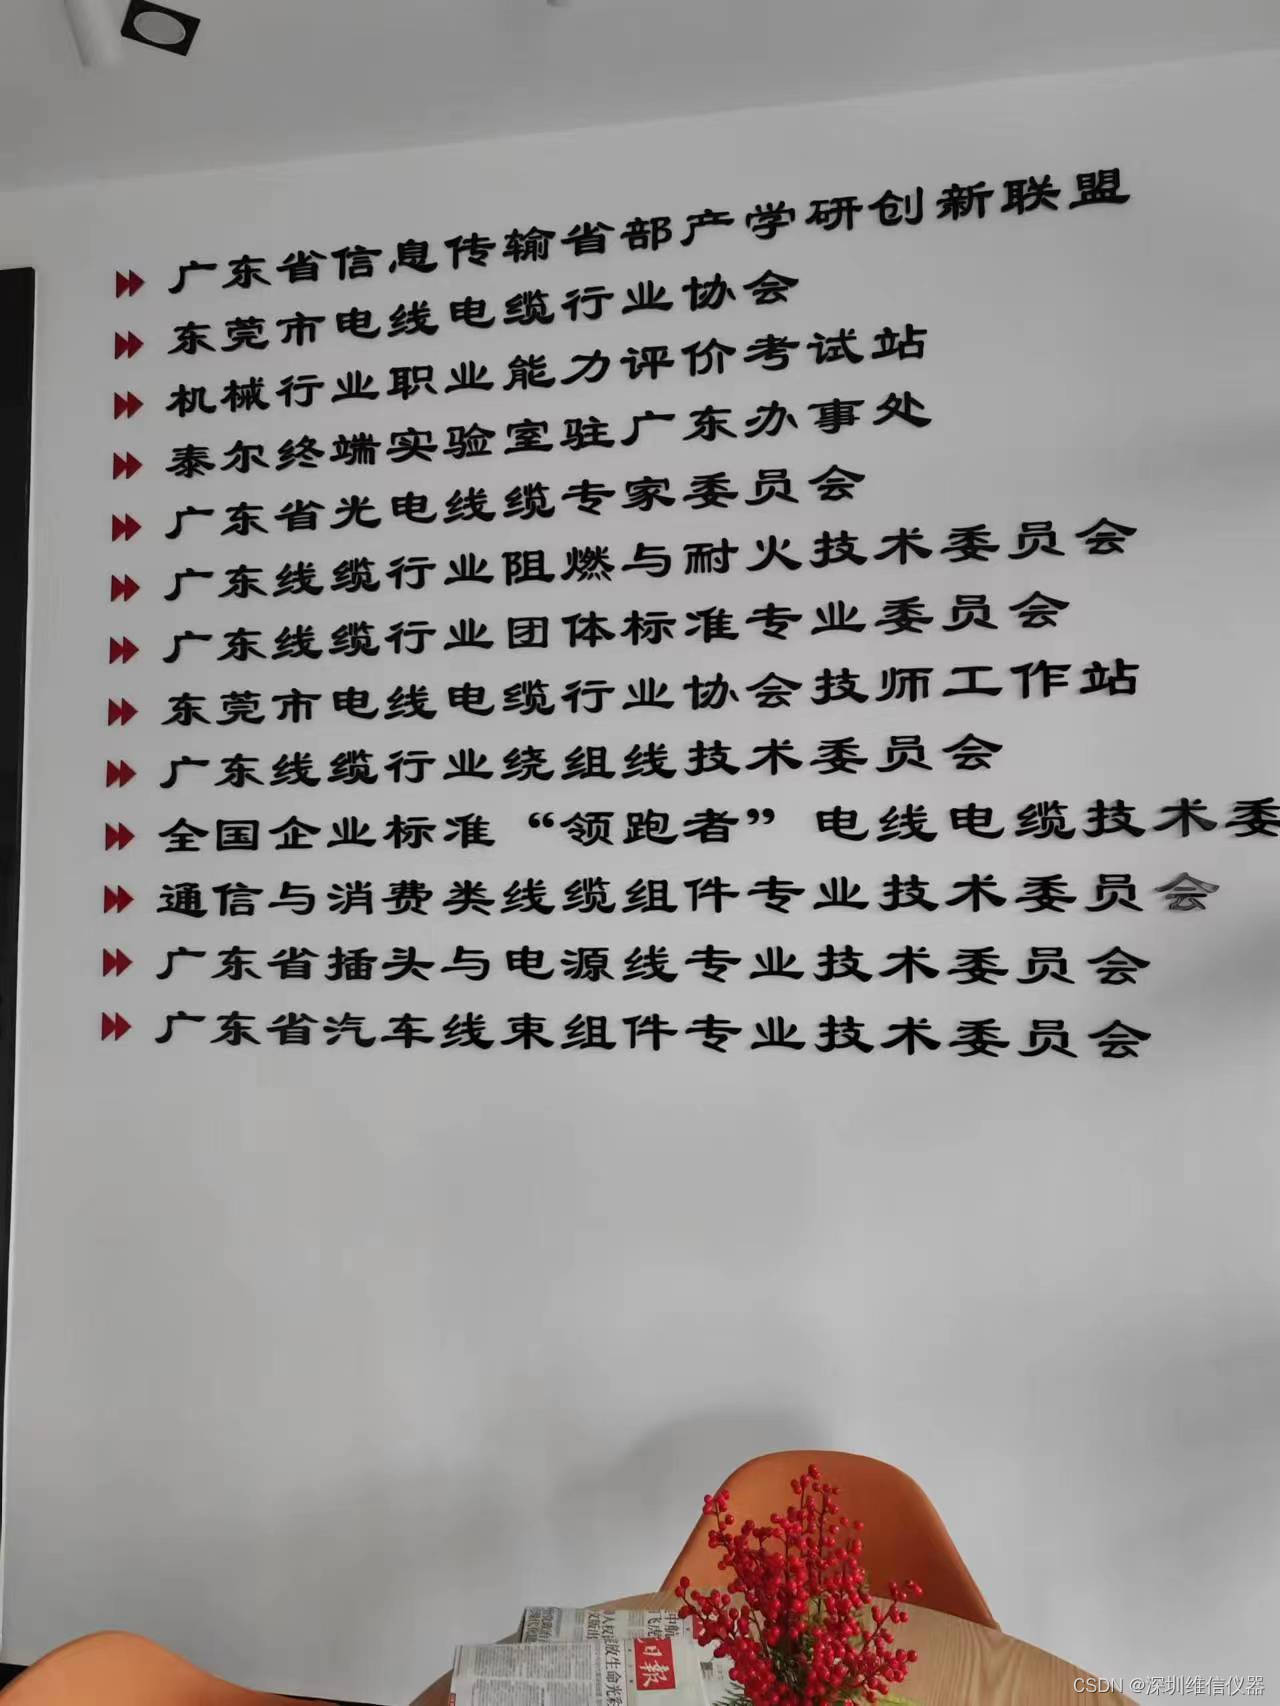 广东省信息传输省部产学研创新联盟
东莞市电线电缆行业协会
机械行业职业能力评价考试站
泰尔终端实验室驻广东办事处
广东省光电线缆专家委员会
广东线缆行业阻燃与耐火技术委员会
广东线缆行业团体标准专业委员会
东莞市电线电缆行业协会技师工作站
广东线缆行业绕组线技术委员会
全国企业标准“领跑者”电线电缆技术委
通信与消费类线缆组件专业技术委员会
广东省插头与电源线专业技术委员会
广东省汽车线束组件专业技术委员会
日报
CSDN @深圳维信仪器